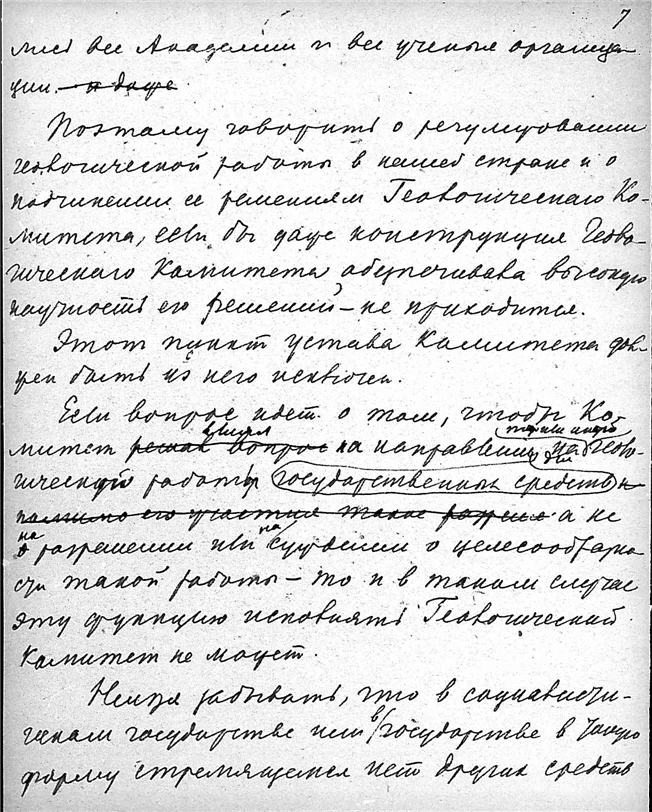 7
лись все Академии и все ученые организа
ции. и даже
Поэтому говорить о регулировании
геологической работы в нашей стране и о
подчинении ее решениям Геологическаго Ко-
митета, если бы даже конструкция Геоло-
гическаго Комитета обеспечивала высокую
научность его решений, - не приходится.
Этот пункт устава Комитета дол-
жен быть из него исключен.
Если вопрос идет о том, чтобы Ко-
влиял
митет решал вопрос на направлении на геоло-
для
гической работы государственных средств и
помимо его участия такое а не
на на
о разрешении или суждении о целесообразно
сти такой работы - то и в таком случае
эту функцию исполнять Геологический
Комитет не может.
Нельзя забывать, что в социалисти-
в
ческом государстве или государстве в такую
форму стремящемся нет других средств